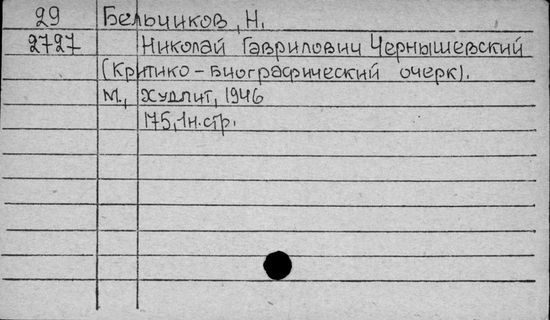 29 Бельчиков, Н.
2727 Николай Гаврилович Чернышевский
(Критико-биографический очерк).
М., Худлит, 1946
175, 1н.стр.